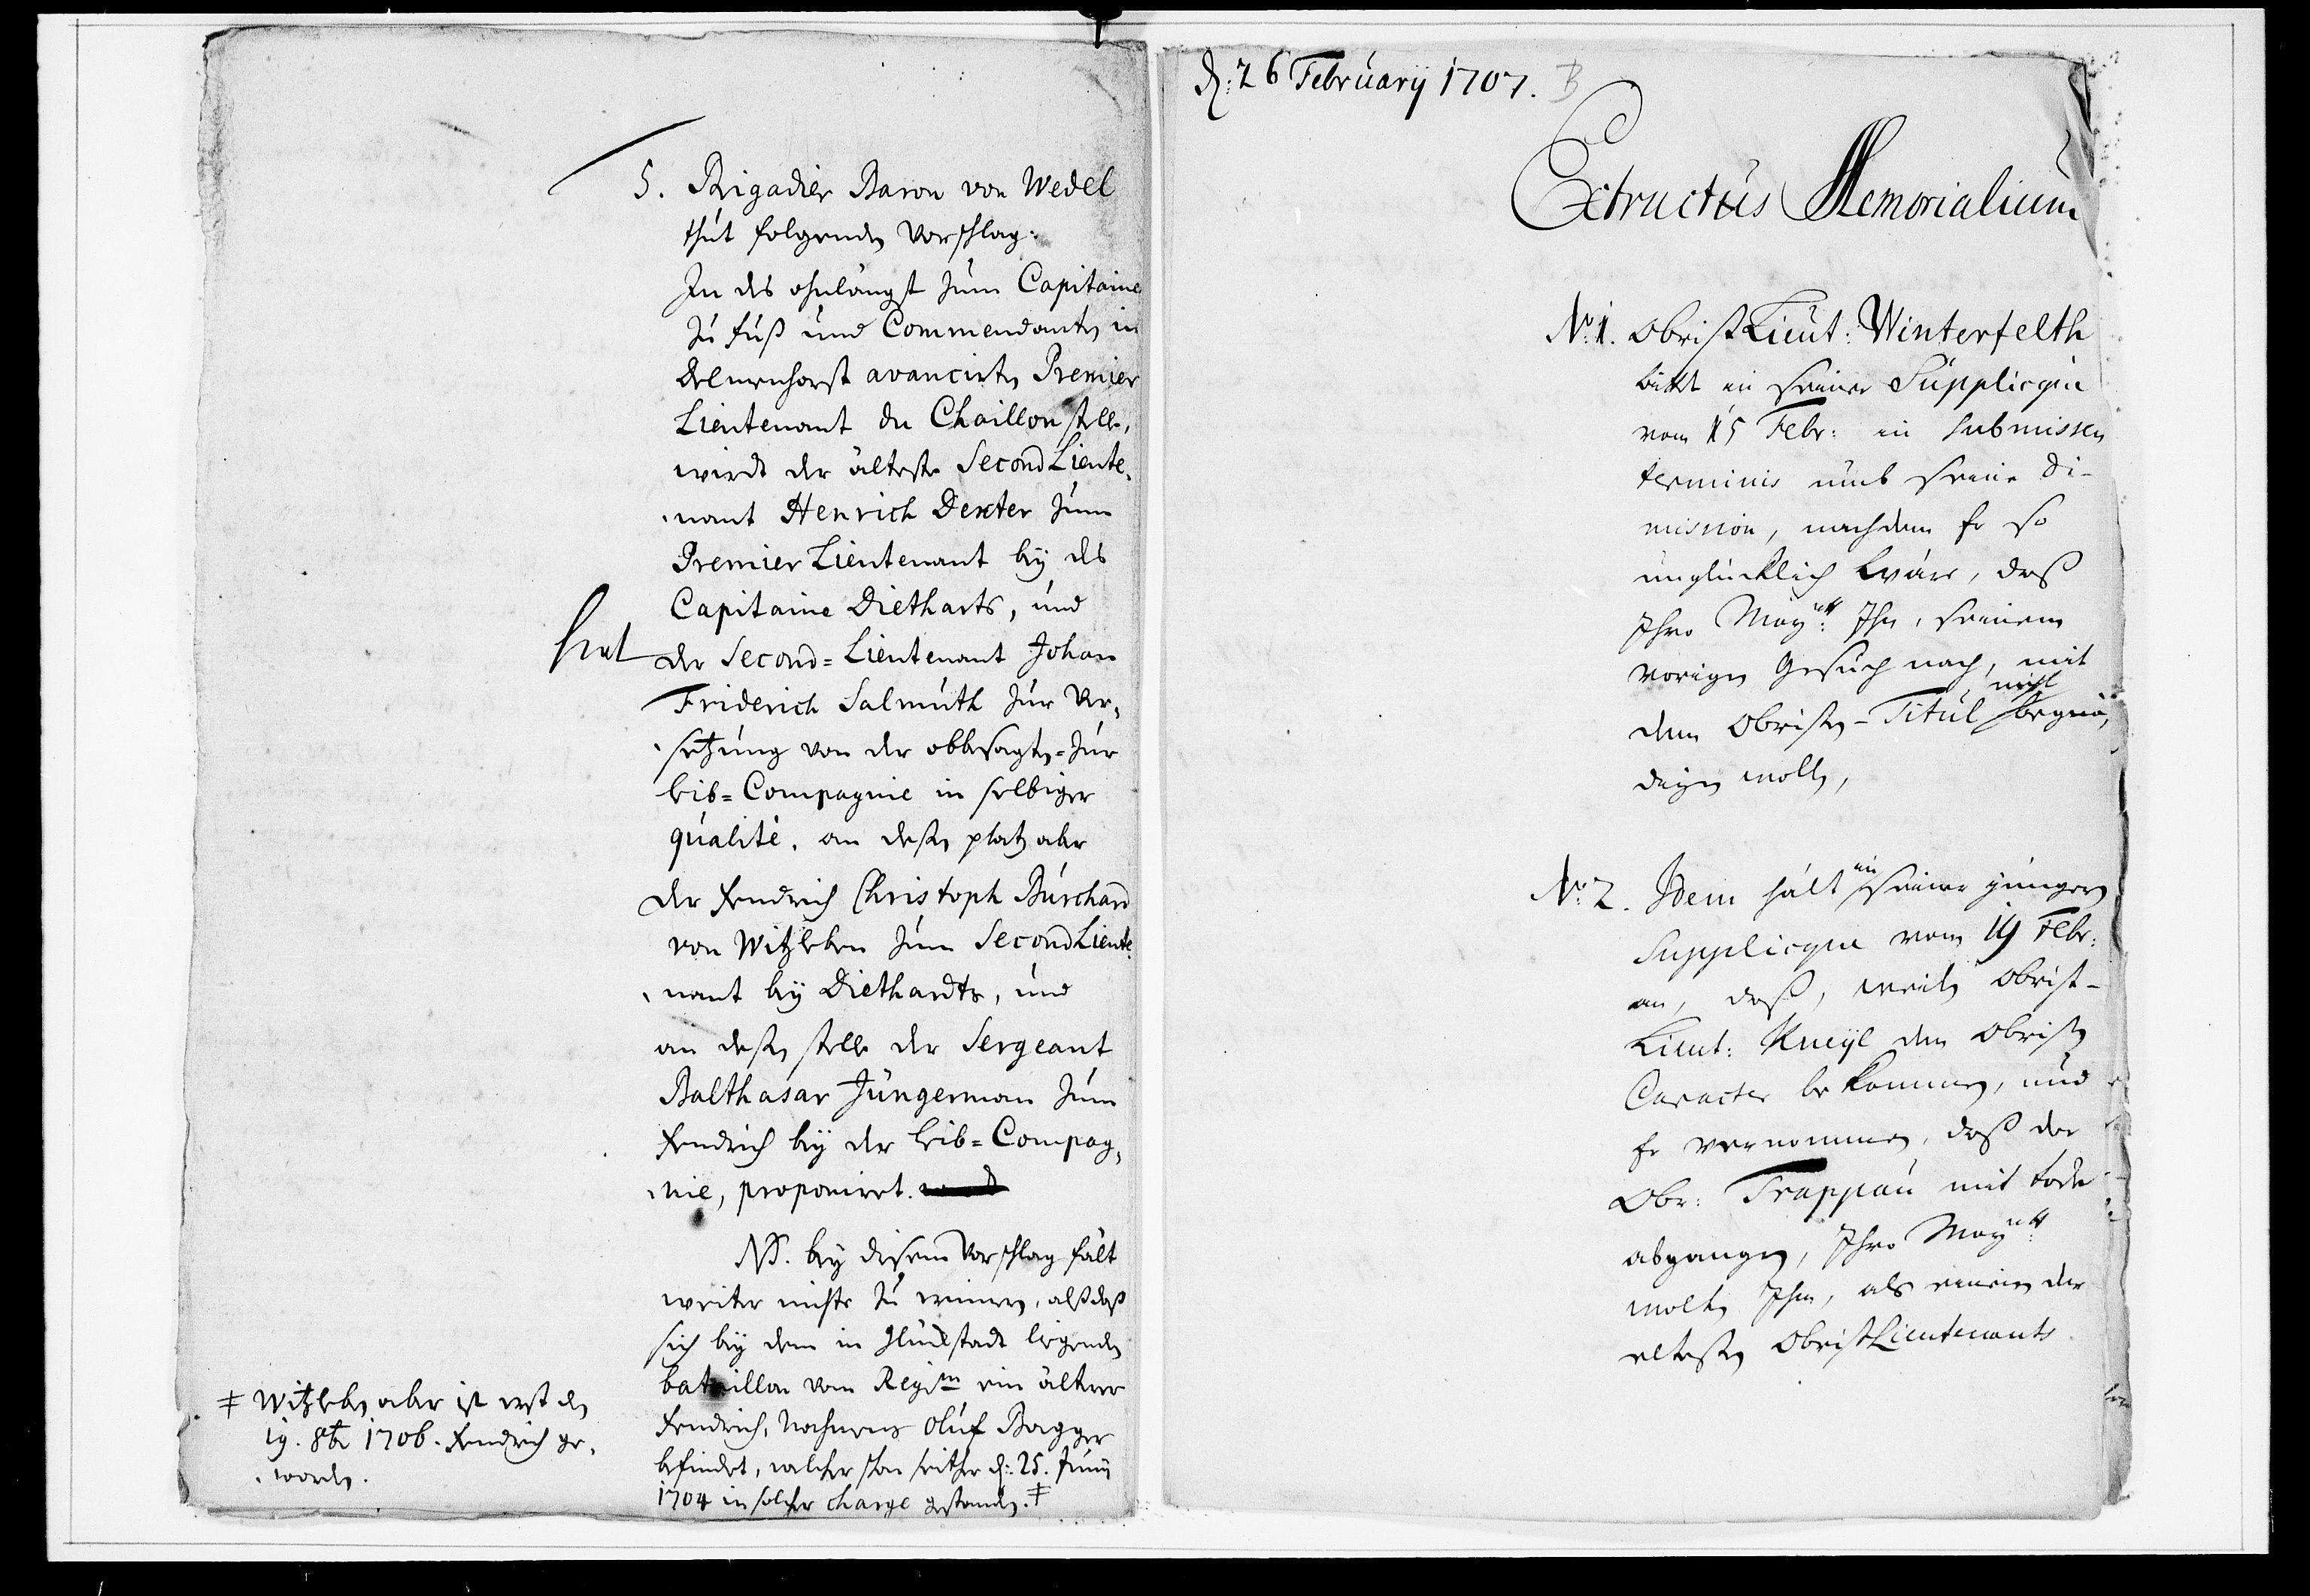 5. Brigadier Baron von Wedel
thut folgenden Vorschlag:
In des ohnlängst zum Capitaine
zu fuß und Commendanten in
Delmenhorst avancirten Premier
Lieutenant du Chaillon stelle,
wirdt der älteste Second Lieute-
nant Henrich Dexter zum
Premier Lieutenant bey des
Capitaine Dietharts, und
der Second-Lieutenant Johan
Friderich Salmuth zur Ver-
setzung von der obbesagten- zur
leib-Compagnie in selbiger
qualité, an deßen platz aber
der fendrich Christoph Burchard
von Witzleben zum Second Lieute-
nant bey Diethardts, und
an deßen stelle der Sergeant
Balthasar Jüngerman zum
fendrich bey der leib-Compag-
nie, proponiret.
NB. bey diesem Vorschlag fält
weiter nichts zu erinnern, alß daß
sich bey dem in Glückstadt liegenden
bataillon vom Regim ein älterer
fendrich, Nahmens Oluf Bagger
befindet, welcher schon seither d: 25. Junij
1704 in solcher charge gestanden. ‡
‡ Witzleben aber ist erst den
19. 8br 1706. fendrich ge-
worden.
d: 26 February 1707. B
Extractus Memorialium
No: 1. Obrist Lieut: Winterfelth
bittet in seiner Supplicque
vom 15 Febr: in submissen
terminis umb seine di-
mission, nachdem er so
unglücklich wäre, daß
Ihro Maytt: Ihn, seinem
vorigen Gesuch nach, mit
dem Obristen-Titul nicht begnä-
digen wollen,
No: 2. Idem hält in seiner jüngern
Supplicque vom 19 Febr:
an, daß, weiln Obrist-
Lieut: Kneyl den Obristen
Caracter bekommen, und
er vernommen, daß der
Obr: Trappau mit tode
abgangen, Ihro Maytt:
wolten Ihm, als einem der
eltesten Obrist Lieutenants